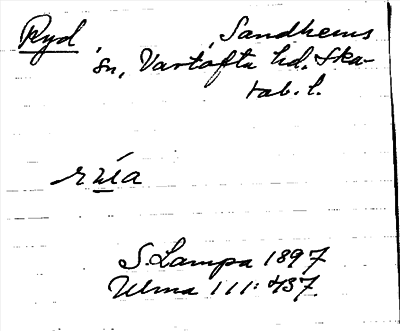 Ryd, Sandhems
sn, Vartofta hd. Ska-
rab. l.
S. Lampa 1897
Ulma 111:437.